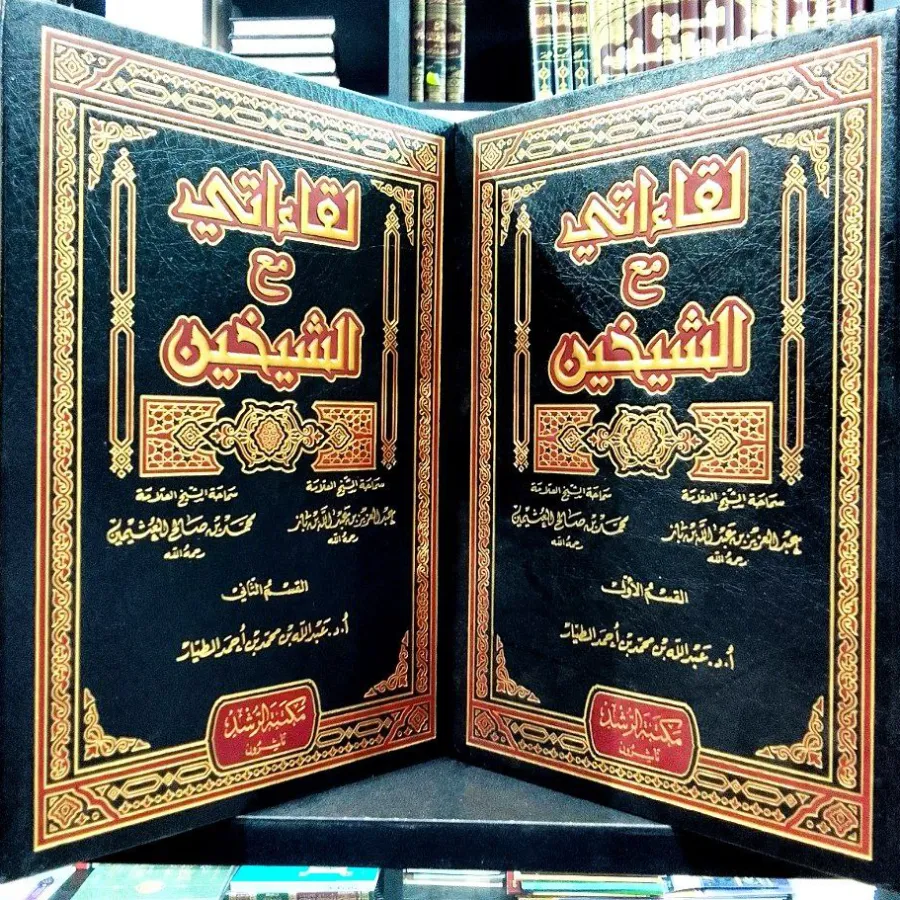 لقاءاتي
مع
الشيخين
سماحة الشيخ العلامة
عبد العزيز بن عبد الله بن باز
رحمه الله
سماحة الشيخ العلامة
محمد بن صالح العثيمين
رحمه الله
القسم الأول
أ.د. عبد الله بن محمد بن أحمد الطيار
مكتبة الرشد
ناشرون
لقاءاتي
مع
الشيخين
سماحة الشيخ العلامة
عبد العزيز بن عبد الله بن باز
رحمه الله
سماحة الشيخ العلامة
محمد بن صالح العثيمين
رحمه الله
القسم الثاني
أ.د. عبد الله بن محمد بن أحمد الطيار
مكتبة الرشد
ناشرون